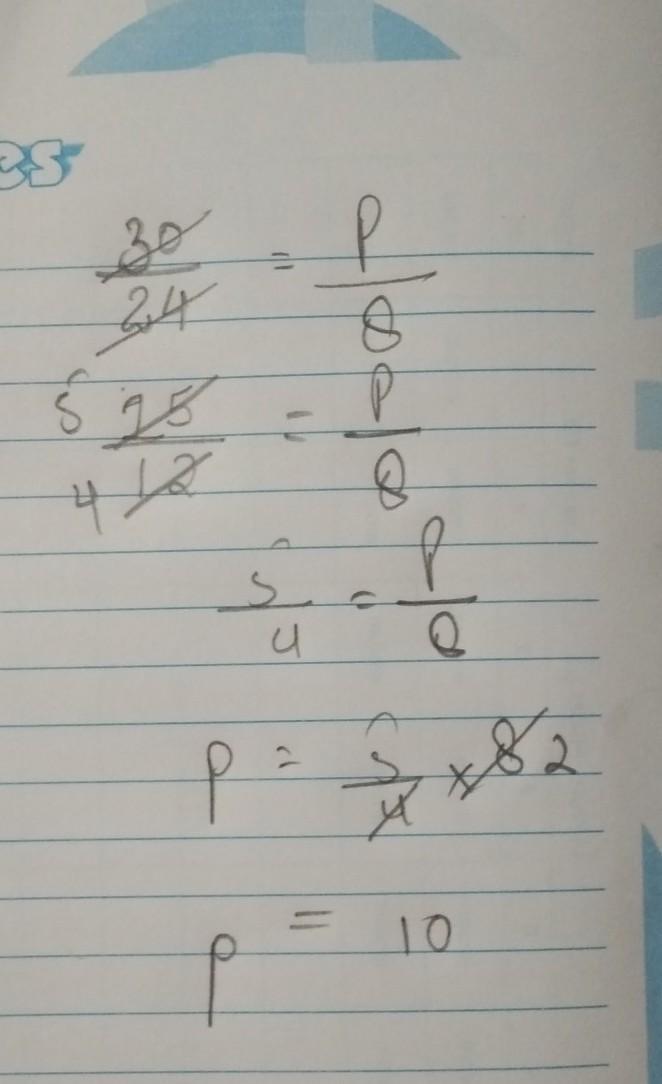 es
30/24 = P/8
5 15/12 4 = P/8
5/4 = P/8
P = 5/4 × 8 2
P = 10